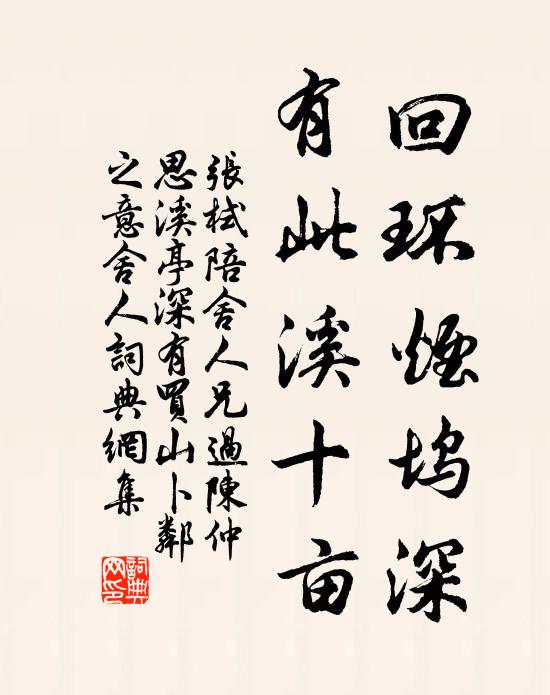 回环煙坞深
有此溪十亩
張栻陪舍人兄過陳仲
思溪亭深有買山卜鄰
之意舍人詞典網集
詞典
网印